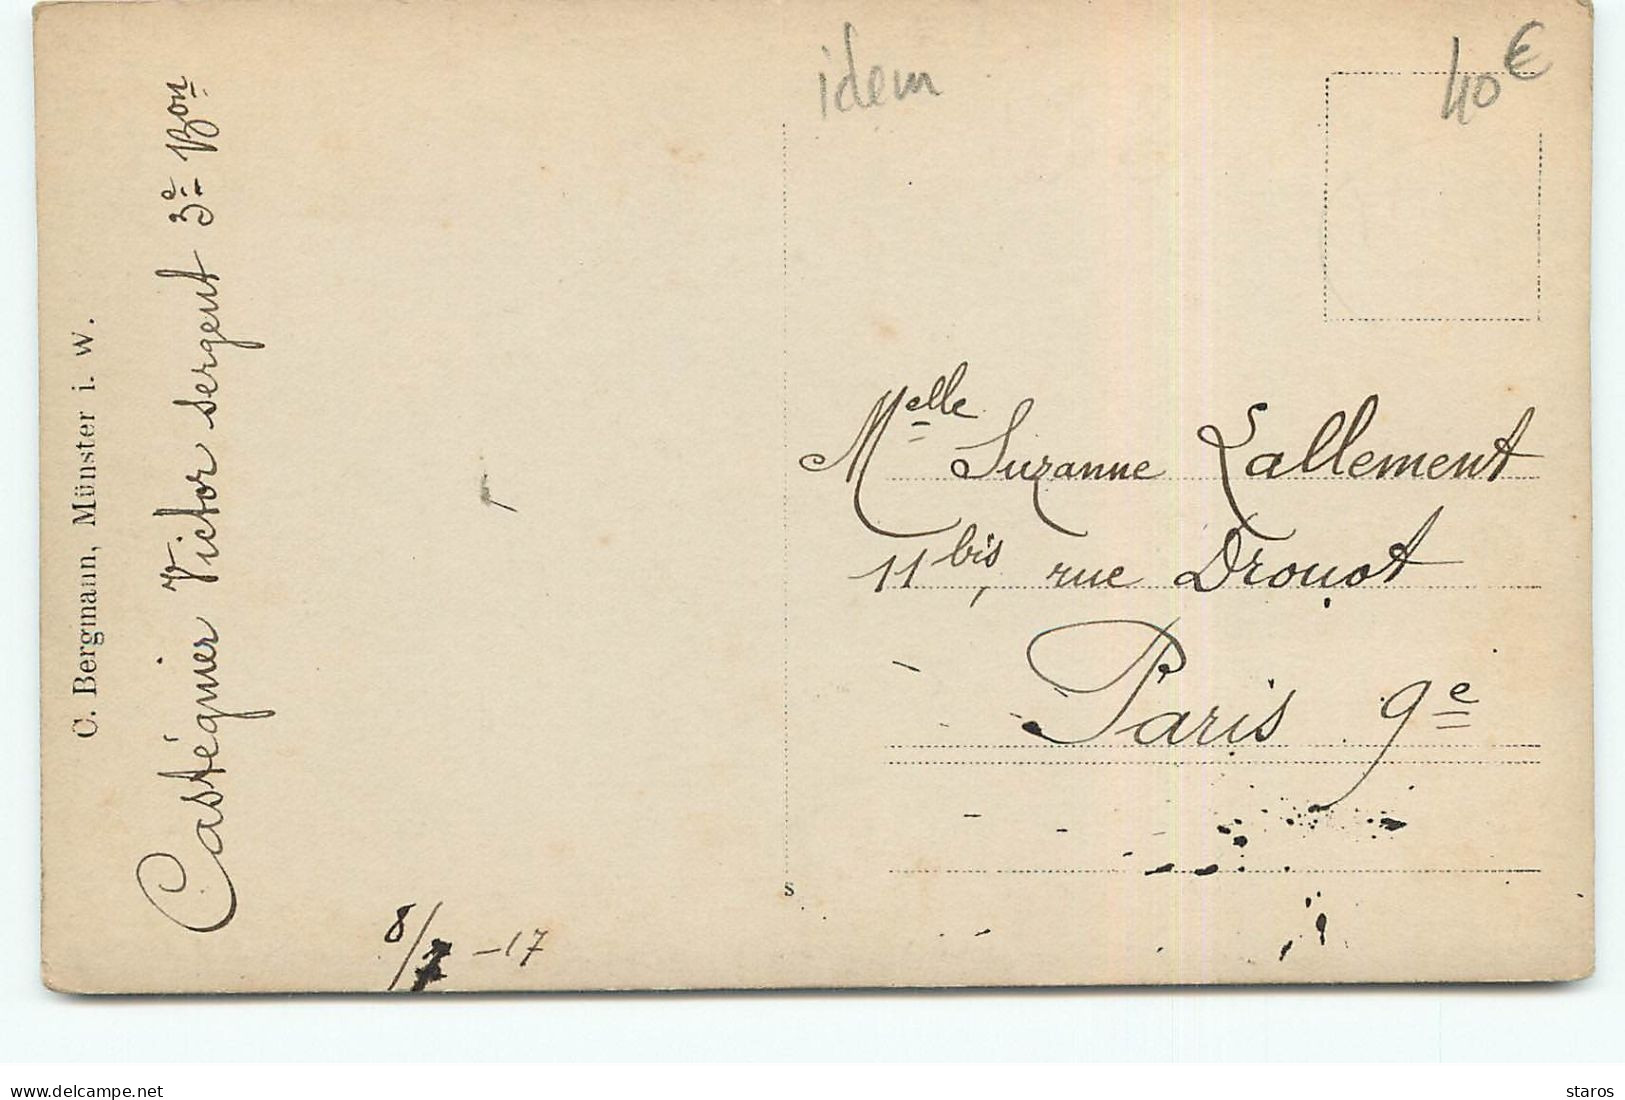 idem
40€
C. Bergmann, Münster i. W.
Castégnier Victor sergent 3e Bon
Melle Suzanne Lallement
11bis, rue Drouot
Paris 9e
s
8/7 -17
delcampe.net
staros